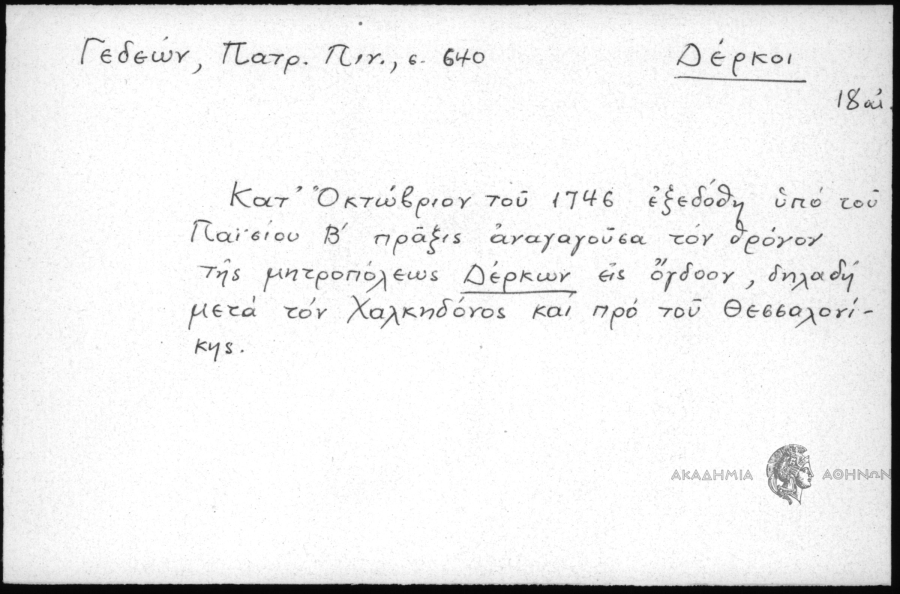 Γεδεών, Πατρ. Πιν., σ. 640
Δέρκοι
18 αἰ.
Κατ' Ὀκτώβριον τοῦ 1746 ἐξεδόθη ὑπό τοῦ
Παϊσίου Β' πρᾶξις ἀναγαγοῦσα τόν θρόνον
τῆς μητροπόλεως Δέρκων εἰς ὄγδοον, δηλαδή
μετά τόν Χαλκηδόνος καί πρό τοῦ Θεσσαλονί-
κης.
ΑΚΑΔΗΜΙΑ ΑΘΗΝΩΝ